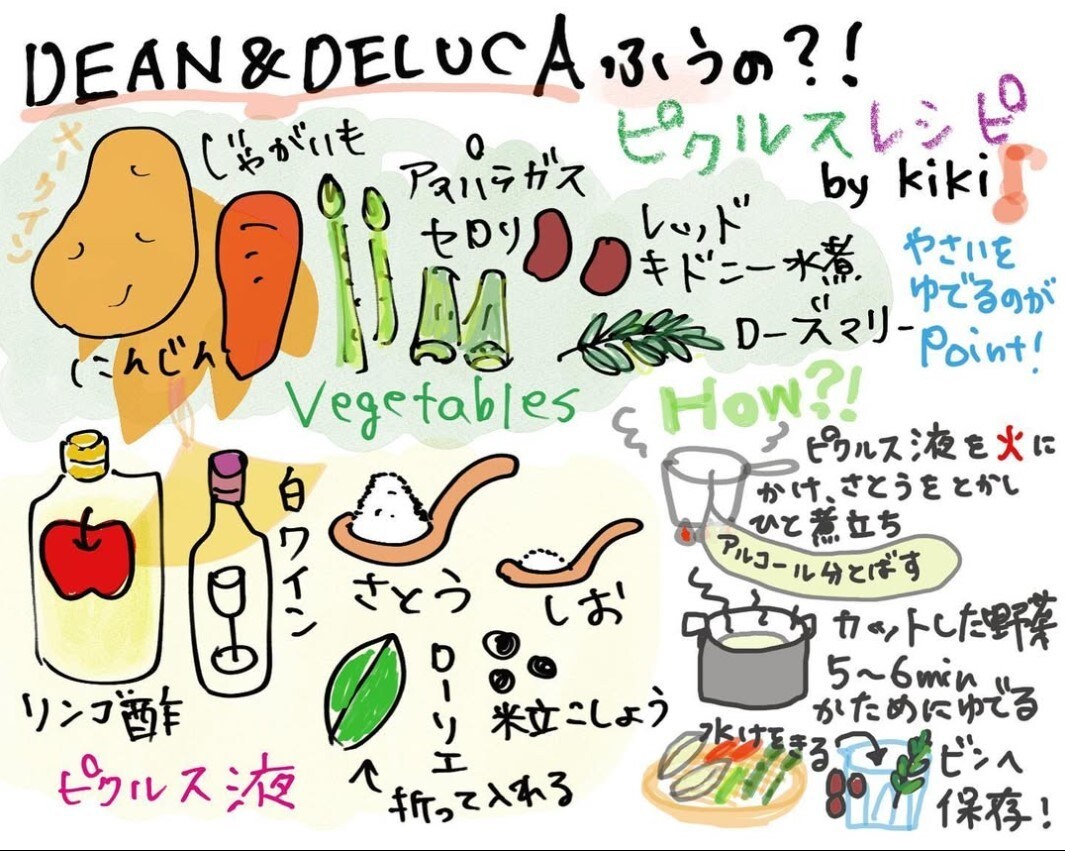 DEAN & DELUCA ふうの?!
ピクルスレシピ
by kiki
メークイン
じゃがいも
アスパラガス
セロリ
レッド
キドニー水煮
ローズマリー
にんじん
Vegetables
やさいを
ゆでるのが
Point!
リンゴ酢
白ワイン
さとう
しお
ローリエ
折って入れる
粒こしょう
ピクルス液
How?!
ピクルス液を火に
かけ、さとうをとかし
ひと煮立ち
アルコール分とばす
カットした野菜
5〜6min
かためにゆでる
水けをきる
ビンへ
保存!